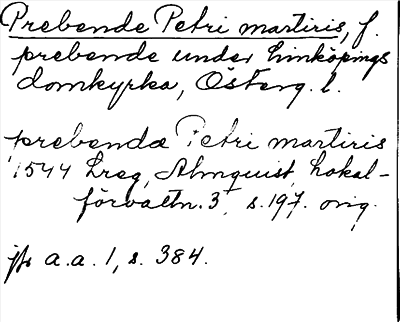 Prebende Petri martiris, f.
prebende under Linköpings
domkyrka, Österg. l.
prebenda Petri martiris
1544 Lreg, Almquist, Lokal-
förvaltn. 3, s. 197. orig.
jfr a.a. 1, s. 384.